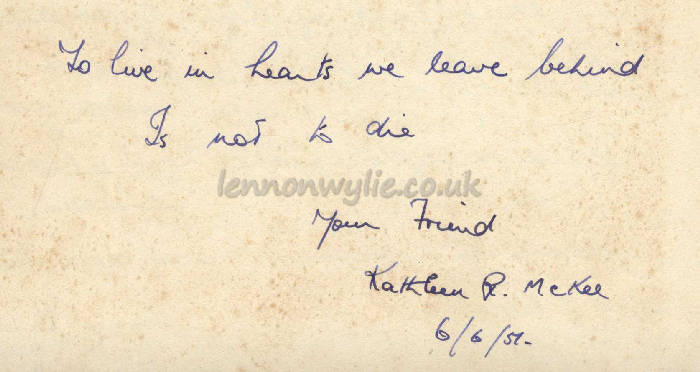 To live in hearts we leave behind
Is not to die
lennonwylie.co.uk
Your Friend
Kathleen R. McKee
6/6/51.